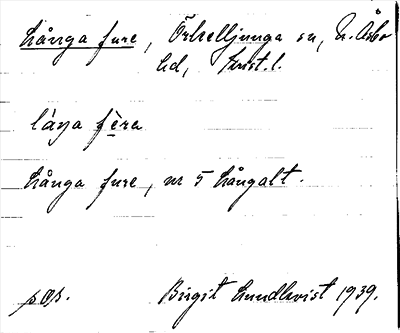 Långa fure, Örkelljunga sn, N. Åsbo
hd, Krist. l.
låŋa fɛ̀ra
Långa fure, nr 5 Långalt.
pop. Birgit Lundkvist 1939.